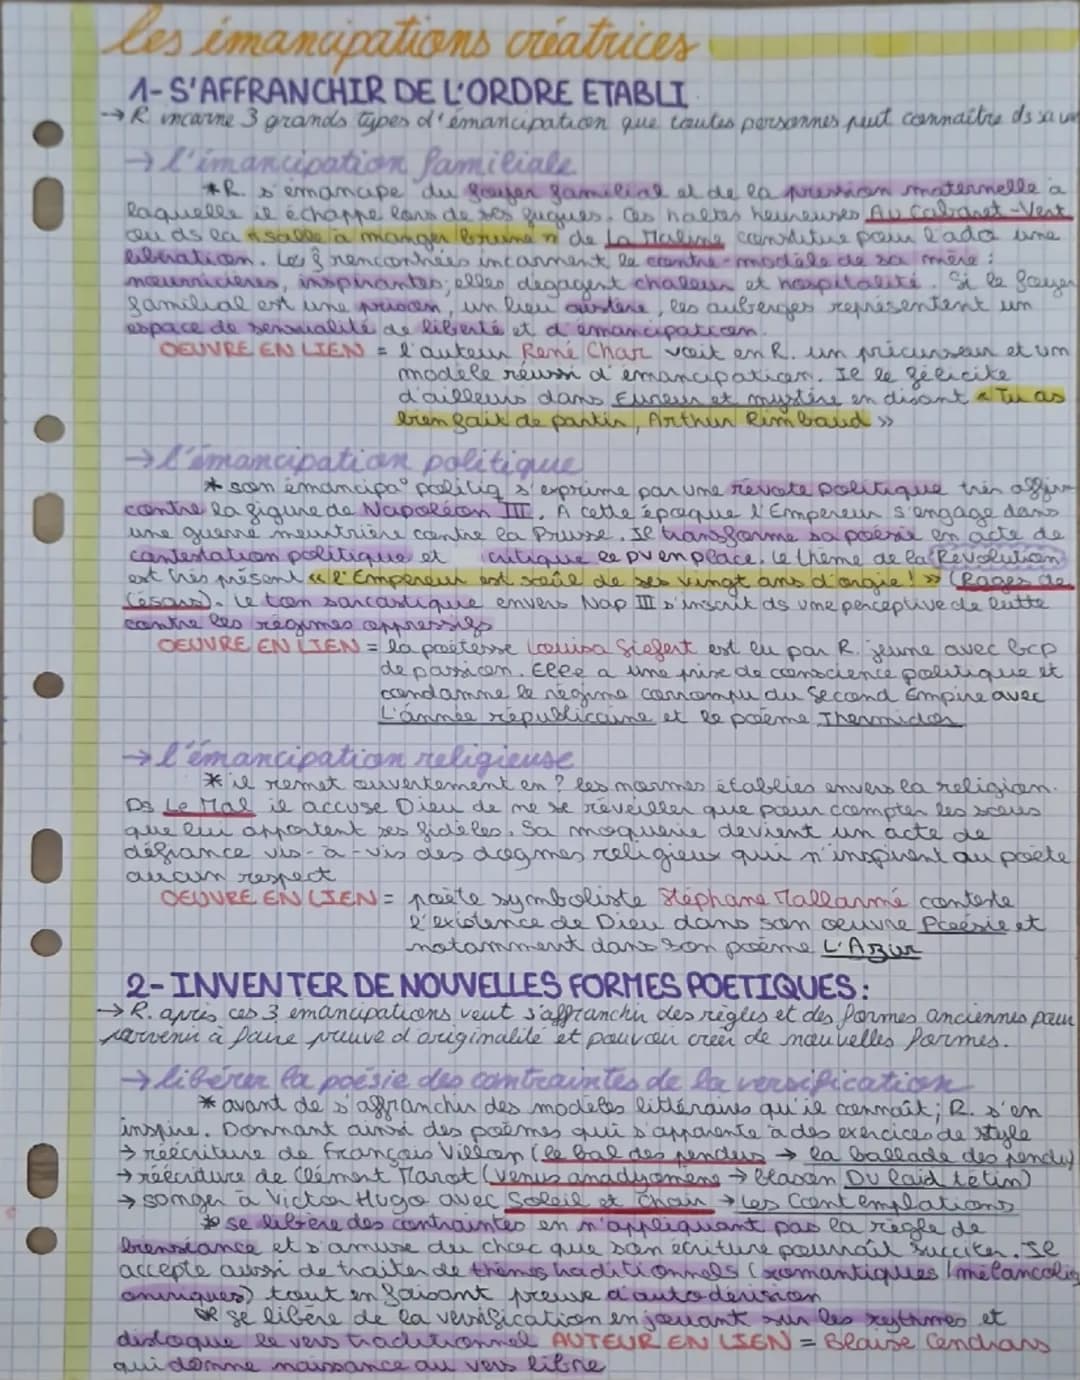 les émancipations créatrices
1- S'AFFRANCHIR DE L'ORDRE ETABLI
→ R incarne 3 grands types d'émancipation que toutes personnes peut connaître ds sa
→ l'émancipation familiale
* R. s'émancipe du foyer familial et de la pression maternelle à
laquelle il échappe lors de ses fugues. Ces haltes heureuses Au Cabaret-Vert
ou ds la « salle à manger brune » de La Maline constitue pour l'ado une
libération. Les f rencontrées incarnent le contre-modèle de sa mère :
nourricières, inspirantes; elles dégagent chaleur et hospitalité. Si le foyer
familial est une prison, un lieu austère, les auberges représentent un
espace de sensualité de liberté et d'émancipation.
OEUVRE EN LIEN = l'auteur René Char voit en R. un précurseur et un
modèle réussi d'émancipation. Il le félicite
d'ailleurs dans Fureur et mystère en disant « Tu as
bien fait de partir, Arthur Rimbaud »
→ l'émancipation politique
* son émancipa° politiq s'exprime par une révolte politique très
contre la figure de Napoléon III. A cette époque l'Empereur s'engage dans
une guerre meurtrière contre la Prusse. Il transforme sa poésie en acte de
contestation politique et critique le pv en place. Le thème de la Révolution
est très présent « l'Empereur est soûl de ses vingt ans d'orgie ! » (Rages de
Césars). Le ton sarcastique envers Nap III s'inscrit ds une perceptive de lutte
contre les régimes oppressifs
OEUVRE EN LIEN = la poétesse Louisa Siefert est lu par R. jeune avec bcp
de passion. Elle a une prise de conscience politique et
condamne le régime corrompu du Second Empire avec
L'année républicaine et le poème Thermidor
→ l'émancipation religieuse
* il remet ouvertement en ? les normes établies envers la religion.
Ds Le Mal il accuse Dieu de ne se réveiller que pour compter les sous
que lui apportent ses fidèles. Sa moquerie devient un acte de
défiance vis-à-vis des dogmes religieux qui n'inspirent au poète
aucun respect
OEUVRE EN LIEN = poète symboliste Stéphane Mallarmé conteste
l'existence de Dieu dans son oeuvre Poésie et
notamment dans son poème L'Azur
2- INVENTER DE NOUVELLES FORMES POETIQUES :
→ R. après ces 3 émancipations veut s'affranchir des règles et des formes anciennes pour
parvenir à faire preuve d'originalité et pouvoir créer de nouvelles formes.
→ libérer la poésie des contraintes de la versification
* avant de s'affranchir des modèles littéraires qu'il connaît; R. s'en
inspire. Donnant ainsi des poèmes qui s'apparente à des exercices de style
→ réécriture de François Villon (le bal des pendus → la ballade des pendus)
→ réécriture de Clément Marot (Vénus anadyomène → blason Du laid tétin)
→ songer à Victor Hugo avec Soleil et Chair → Les Contemplations
* se libère des contraintes en n'appliquant pas la règle de
bienséance et s'amuse du choc que son écriture pourrait susciter. Il
accepte aussi de traiter de thèmes traditionnels (romantiques / mélancoliq
oniriques) tout en faisant preuve d'autodérision
* se libère de la versification en jouant sur les rythmes et
disloque le vers traditionnel AUTEUR EN LIEN = Blaise Cendrars
qui donne naissance au vers libre